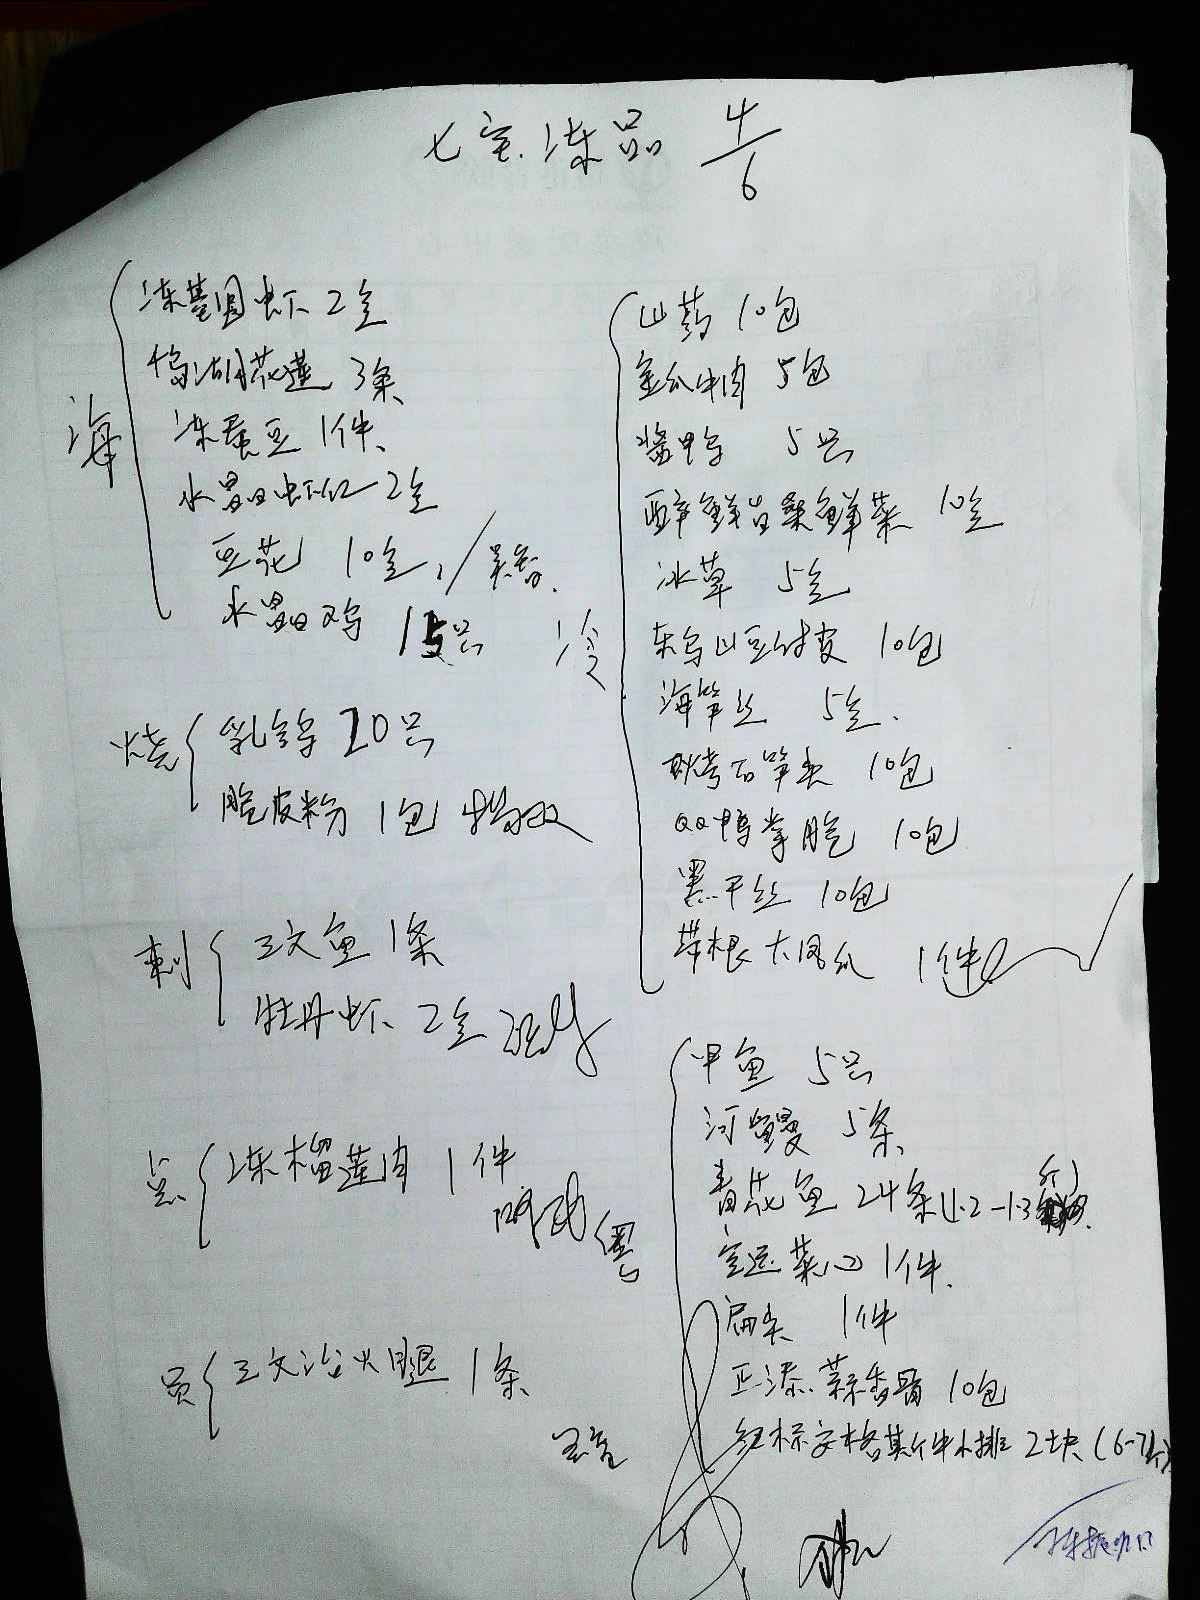 七宝冻品 4/6
海
冻基围虾 2盒
鄱湖花莲 3条
冻蚕豆 1件
水晶虾仁 2盒
豆花 10盒
水晶鸡 15只
烧
乳鸽 20只
脆皮粉 1包
刺
三文鱼 1条
牡丹虾 2盒
点
冻榴莲肉 1件
员
三文治火腿 1条
冷
山药 10包
金瓜牛肉 5包
酱鸭 5只
10盒
冰草 5盒
东乌山豆付皮 10包
海笋丝 5盒
烤笋头 10包
QQ鸭掌脆 10包
黑干丝 10包
带根大凤爪 1件
粤
甲鱼 5只
河鳗 5条
青花鱼 24条(1.2-1.3斤)
空运菜心 1件
扁尖 1件
正添蒜香骨 10包
红标安格斯牛小排 2块(6-7斤)